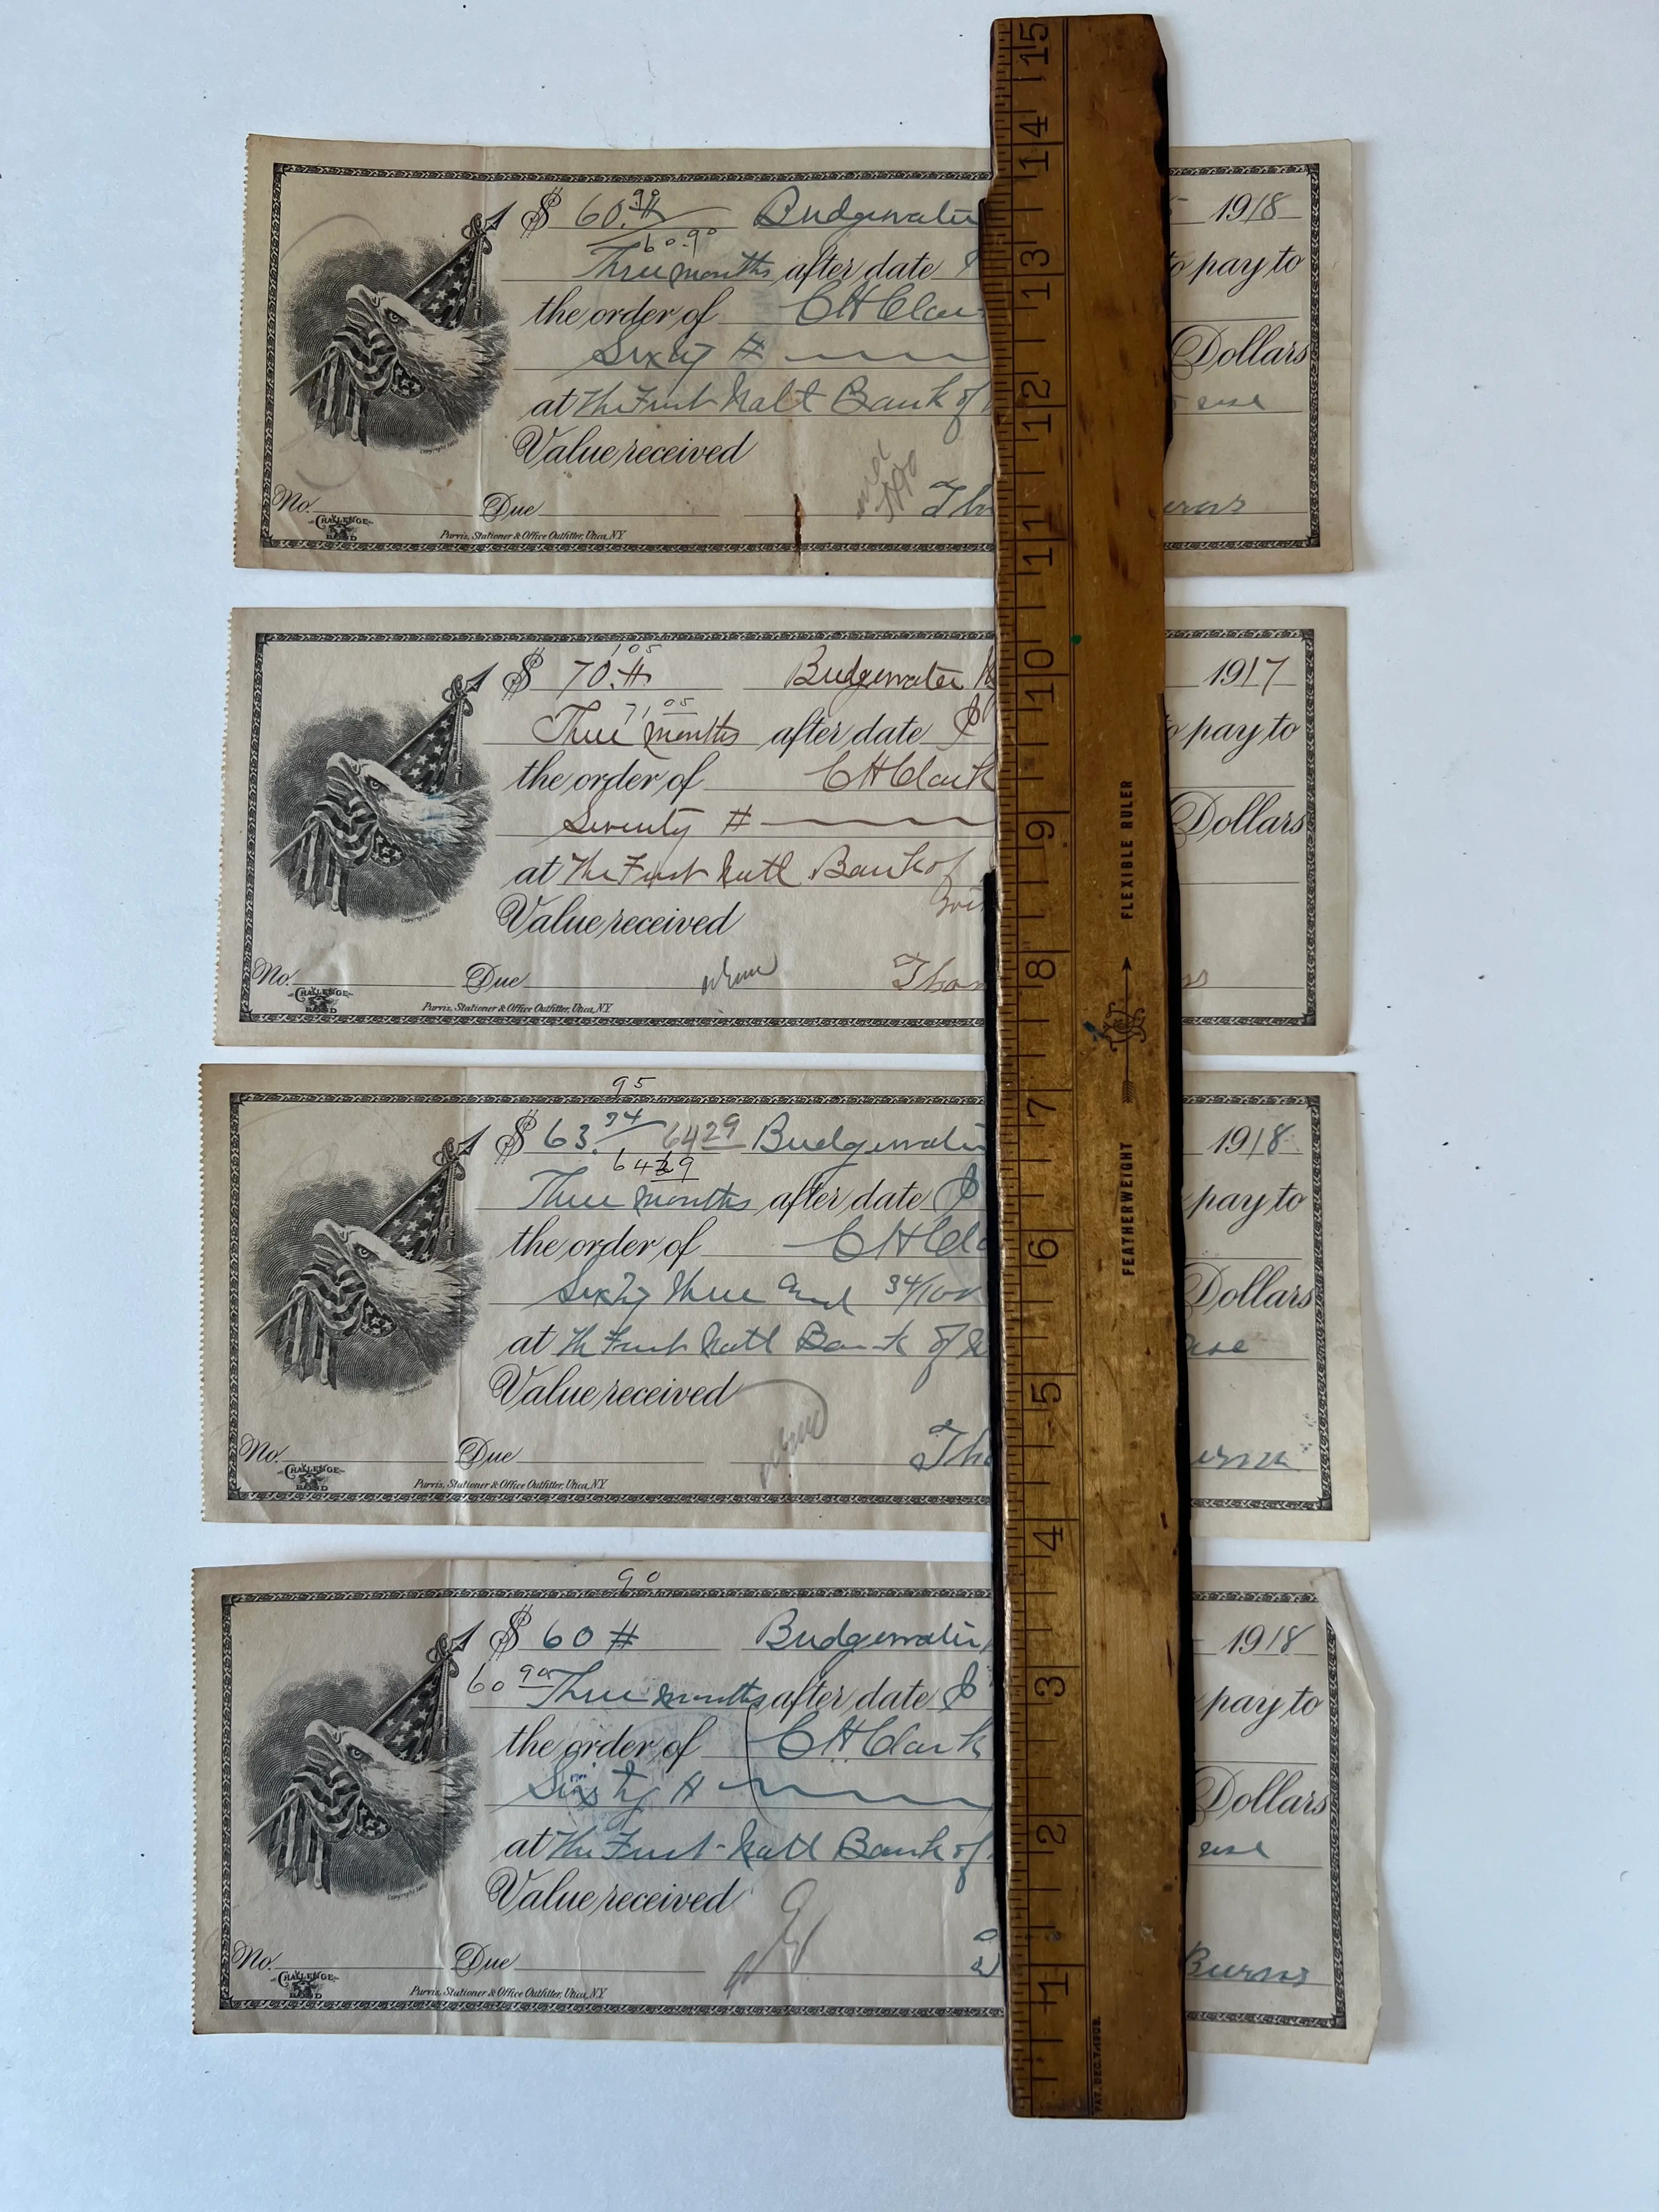 $ 60.## 90 Bridgewater 1918
60.90
Three months after date to pay to
the order of C H Clar
Sixty # Dollars
at The First Natl Bank of use
Value received
No. Due Tho urns
CHALLENGE BOND
Purvis, Stationer & Office Outfitter, Utica, N.Y.
105
$ 70.## Bridgewater N 1917
71.05
Three months after date to pay to
the order of C H Clark
Seventy # Dollars
at The First Natl Bank of
Value received
No. Due Thom ns
CHALLENGE BOND
Purvis, Stationer & Office Outfitter, Utica, N.Y.
95
$ 63.34 6429 Bridgewater 1918
6429
Three months after date pay to
the order of C H Cla
Sixty three and 34/100 Dollars
at The First Natl Bank of use
Value received
No. Due Tho urns
CHALLENGE BOND
Purvis, Stationer & Office Outfitter, Utica, N.Y.
90
$ 60 # Bridgewater 1918
60 90 Three months after date pay to
the order of C H Clark
Sixty # Dollars
at The First Natl Bank of use
Value received
No. Due Burns
CHALLENGE BOND
Purvis, Stationer & Office Outfitter, Utica, N.Y.
15
14
13
12
11
10
9
8
7
6
5
4
3
2
1
FEATHERWEIGHT FLEXIBLE RULER